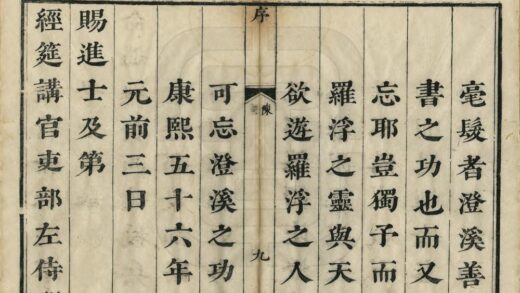 毫髮者澄溪善
書之功也而又
忘耶豈獨予而
羅浮之靈與天
序
陳
九
欲遊羅浮之人
可忘澄溪之功
康熙五十六年
元前三日
賜進士及第
經筵講官吏部左侍